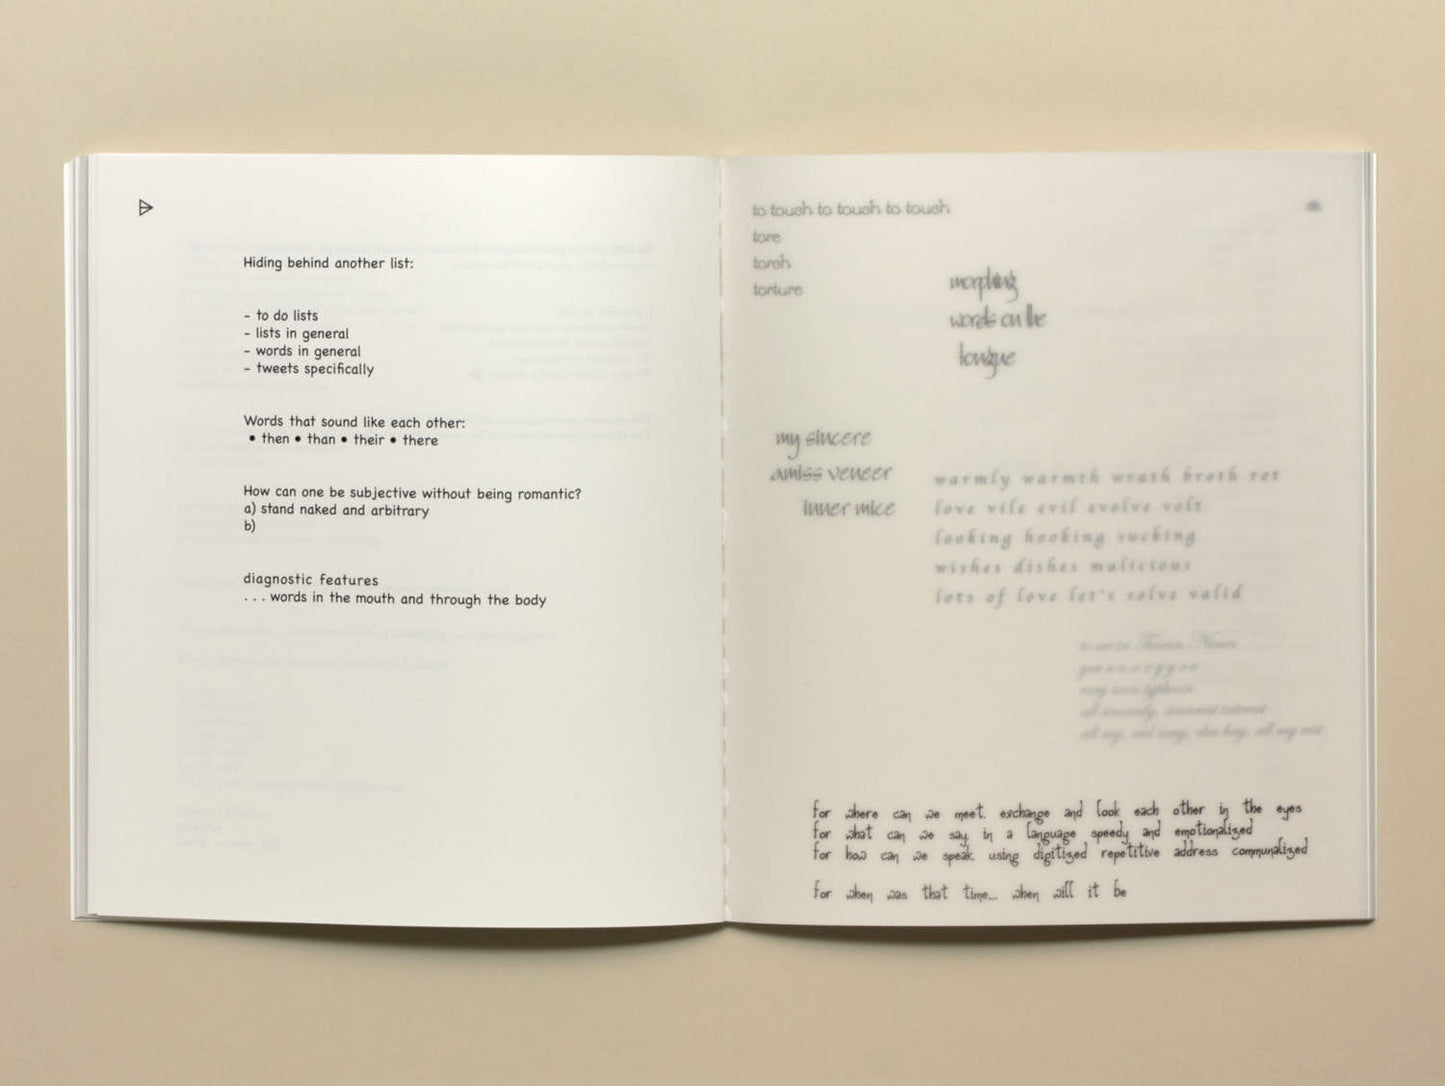 Hiding behind another list:
- to do lists
- lists in general
- words in general
- tweets specifically
Words that sound like each other:
• then • than • their • there
How can one be subjective without being romantic?
a) stand naked and arbitrary
b)
diagnostic features
. . . words in the mouth and through the body
to touch to touch to touch
tore
torch
torture
morphing
words on the
tongue
my sincere
amiss veneer
inner mice
warmly warmth wrath broth rot
love vile evil evolve volt
looking hooking sucking
wishes dishes malicious
lots of love let's solve valid
for where can we meet. exchange and look each other in the eyes
for what can we say. in a language speedy and emotionalized
for how can we speak. using digitized repetitive address communalized
for when was that time... when will it be